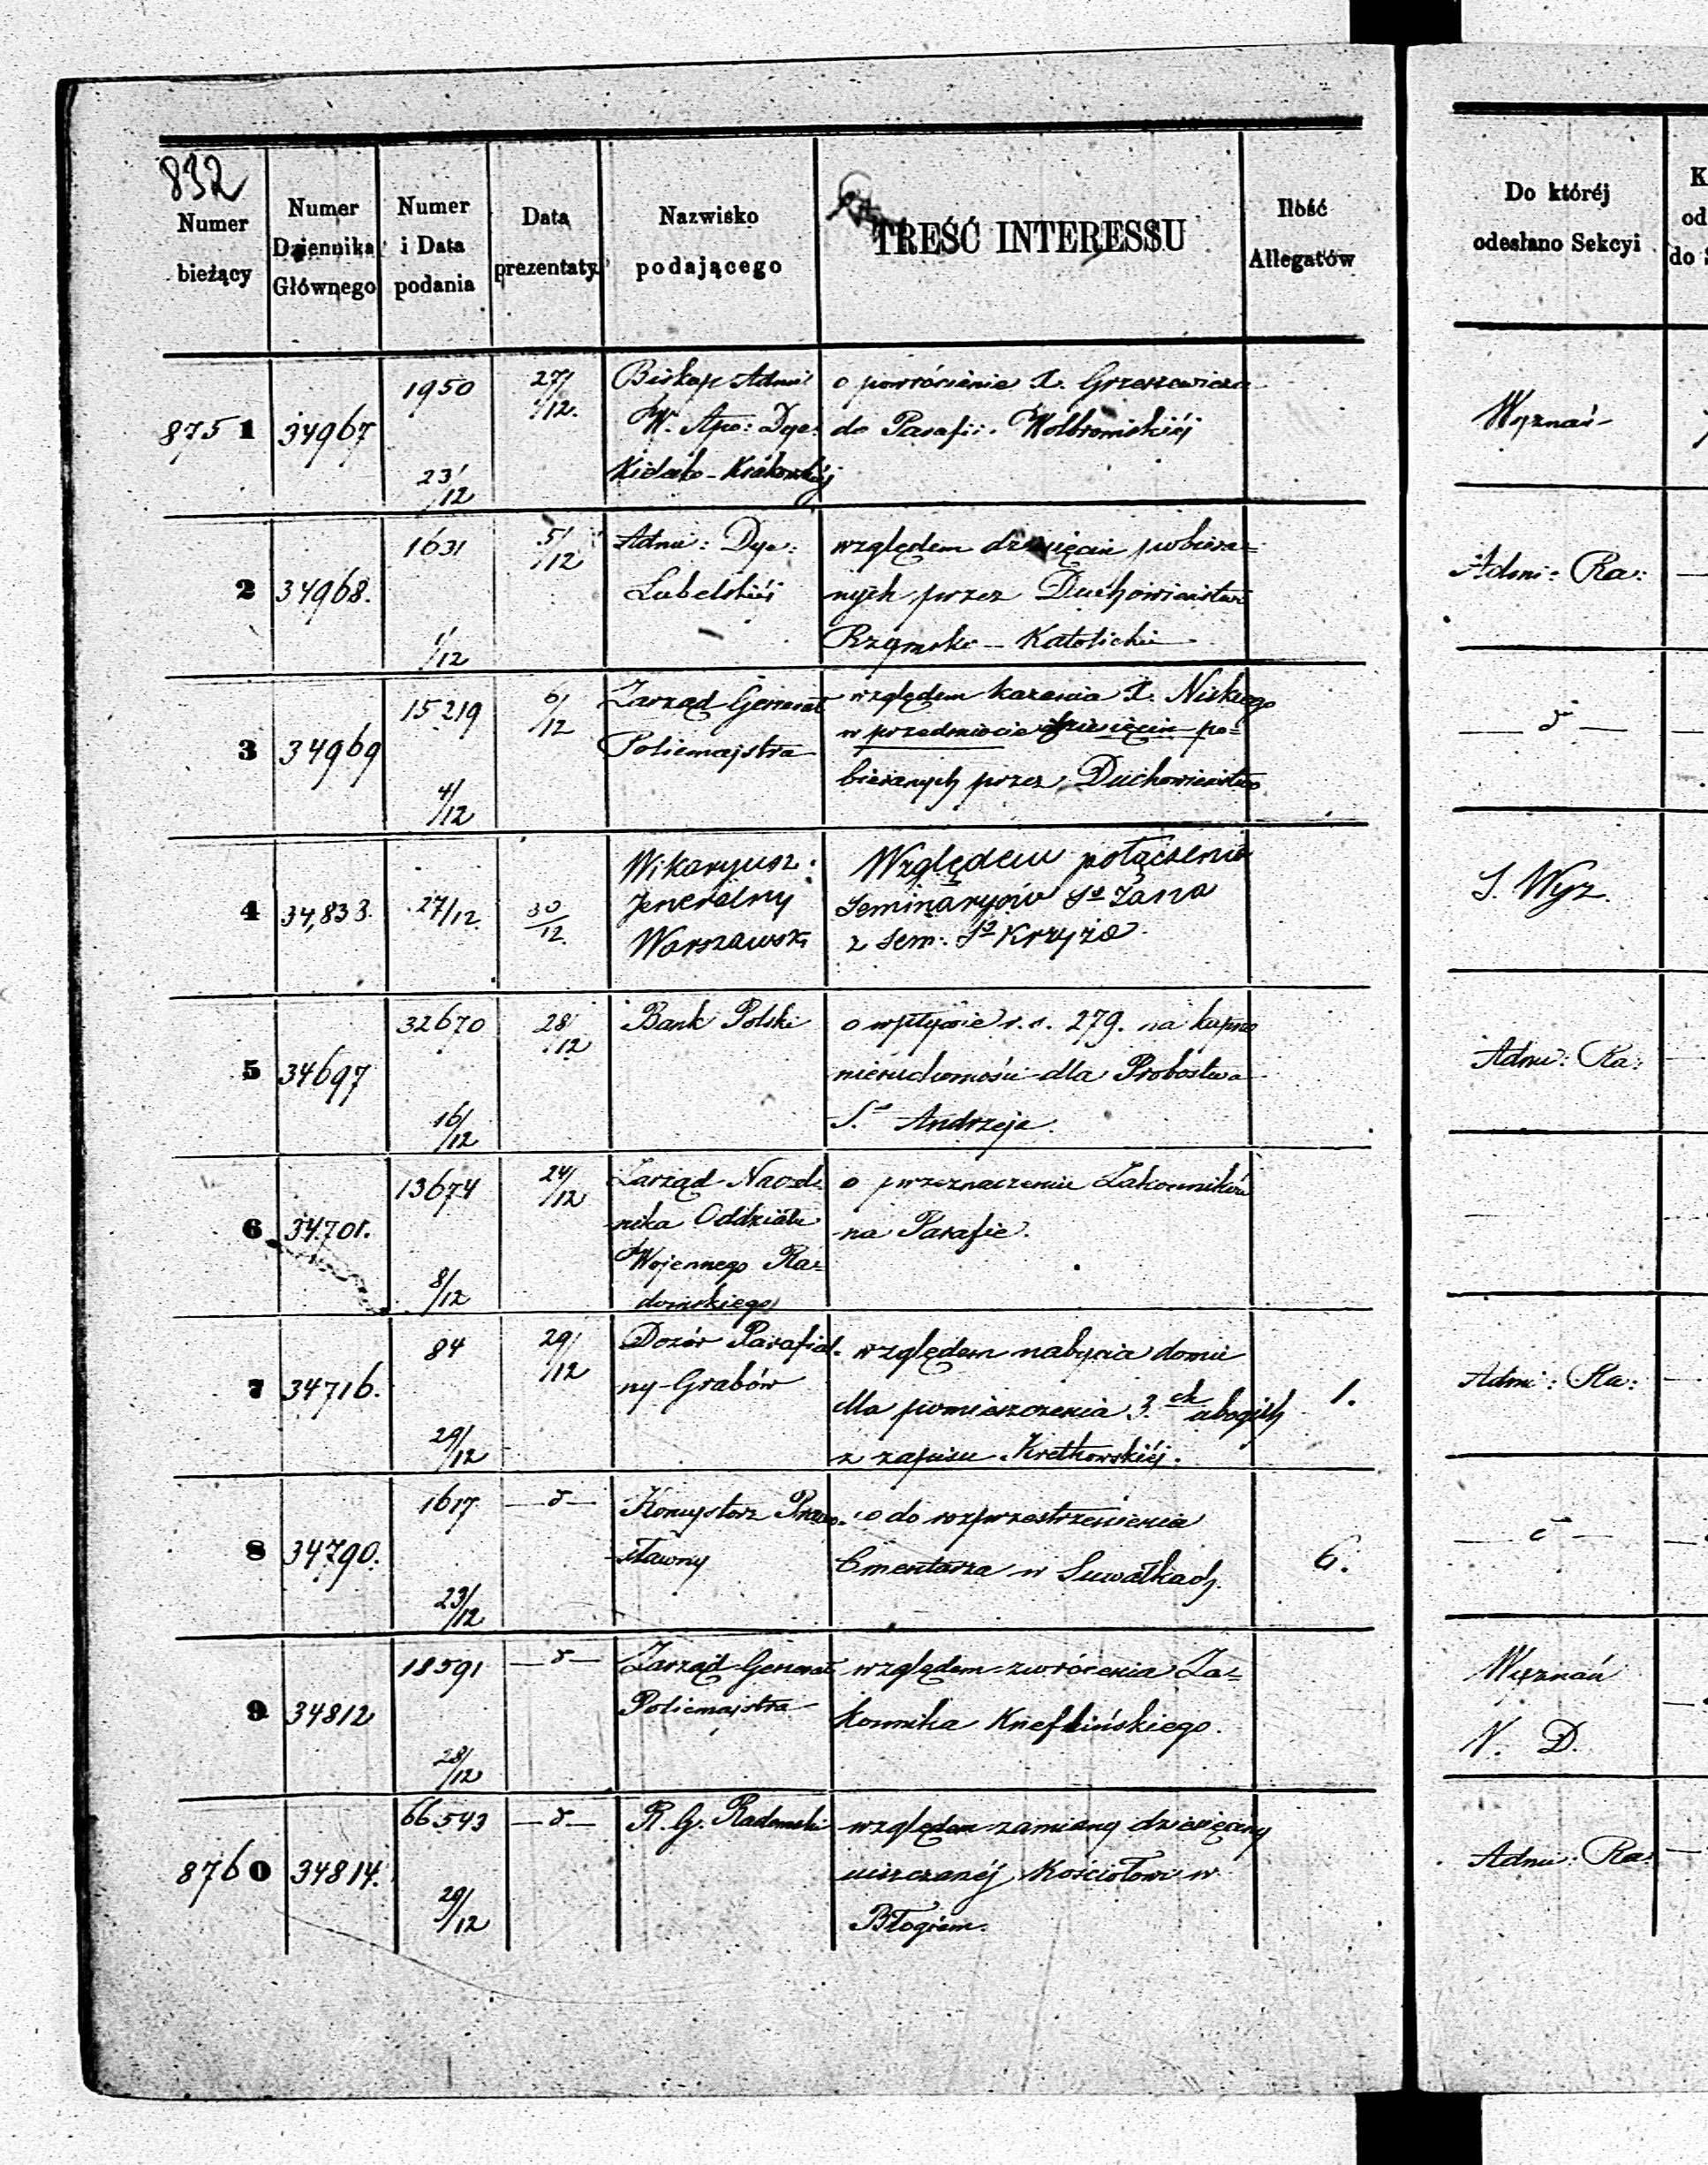 832
Numer
bieżący
Numer
Dziennika
Głównego
Numer
i Data
podania
Data
prezentaty
Nazwisko
podającego
TREŚĆ INTERESSU
Ilość
Allegatów
Do któréj
odesłano Sekcyi
K
od
do S
8751 34967 1950 23/12 27/12
Biskup Admi:
W. Apo: Dye:
Kielecko-Krakowskiéj
o powrócenie X. Grzeszewicza
do Parafii Wolbromskiéj
Wyznań
2 34968. 1631 1/12 5/12
Admi: Dye:
Lubelskiéj
względem dziesięcin pobiera=
nych przez Duchowieństwo
Rzymsko-Katolickie
Admi: Ra:
3 34969 15219 4/12 6/12
Zarząd Generał
Policmajstra
względem kazania X. Niskiego
w przedmiocie dziesięcin po=
bieranych przez Duchowieństwo
— d° —
4 34,833. 27/12. 30/12.
Wikaryusz
Jeneralny
Warszawsk
Względem połączenia
Seminaryów Sgo Jana
z Sem: Sgo Krzyża
S. Wyz.
5 34697 32670 16/12 28/12
Bank Polski
o wpływie r.s. 279. na kupno
nieruchomości dla Probostwa
S. Andrzeja.
Admi: Ra:
6 34701. 13674 8/12 24/12
Zarząd Naczel=
nika Oddziału
Wojennego Ra=
domskiego
o przeznaczenie Zakonników
na Parafie.
7 34716. 84 29/12 29/12
Dozór Parafial=
ny Grabów
względem nabycia domu
dla pomieszczenia 3.ch ubogich
z zapisu Kretkowskiéj.
1.
Admi: Ra:
8 34790. 1617 23/12 — d —
Konsystorz Prawo=
sławny
co do rozprzestrzenienia
Cmentarza w Suwałkach.
6.
— d —
9 34812 18591 28/12 — d —
Zarząd Generał
Policmajstra
względem zwrócenia Za=
konnika Kneflińskiego.
Wyznań
N. D.
8760 34814. 66543 29/12 — d —
R. G. Radomski
względem zamiany dziesięciny
uiszczanéj Kościołowi w
Błogiem.
Admi: Ra: